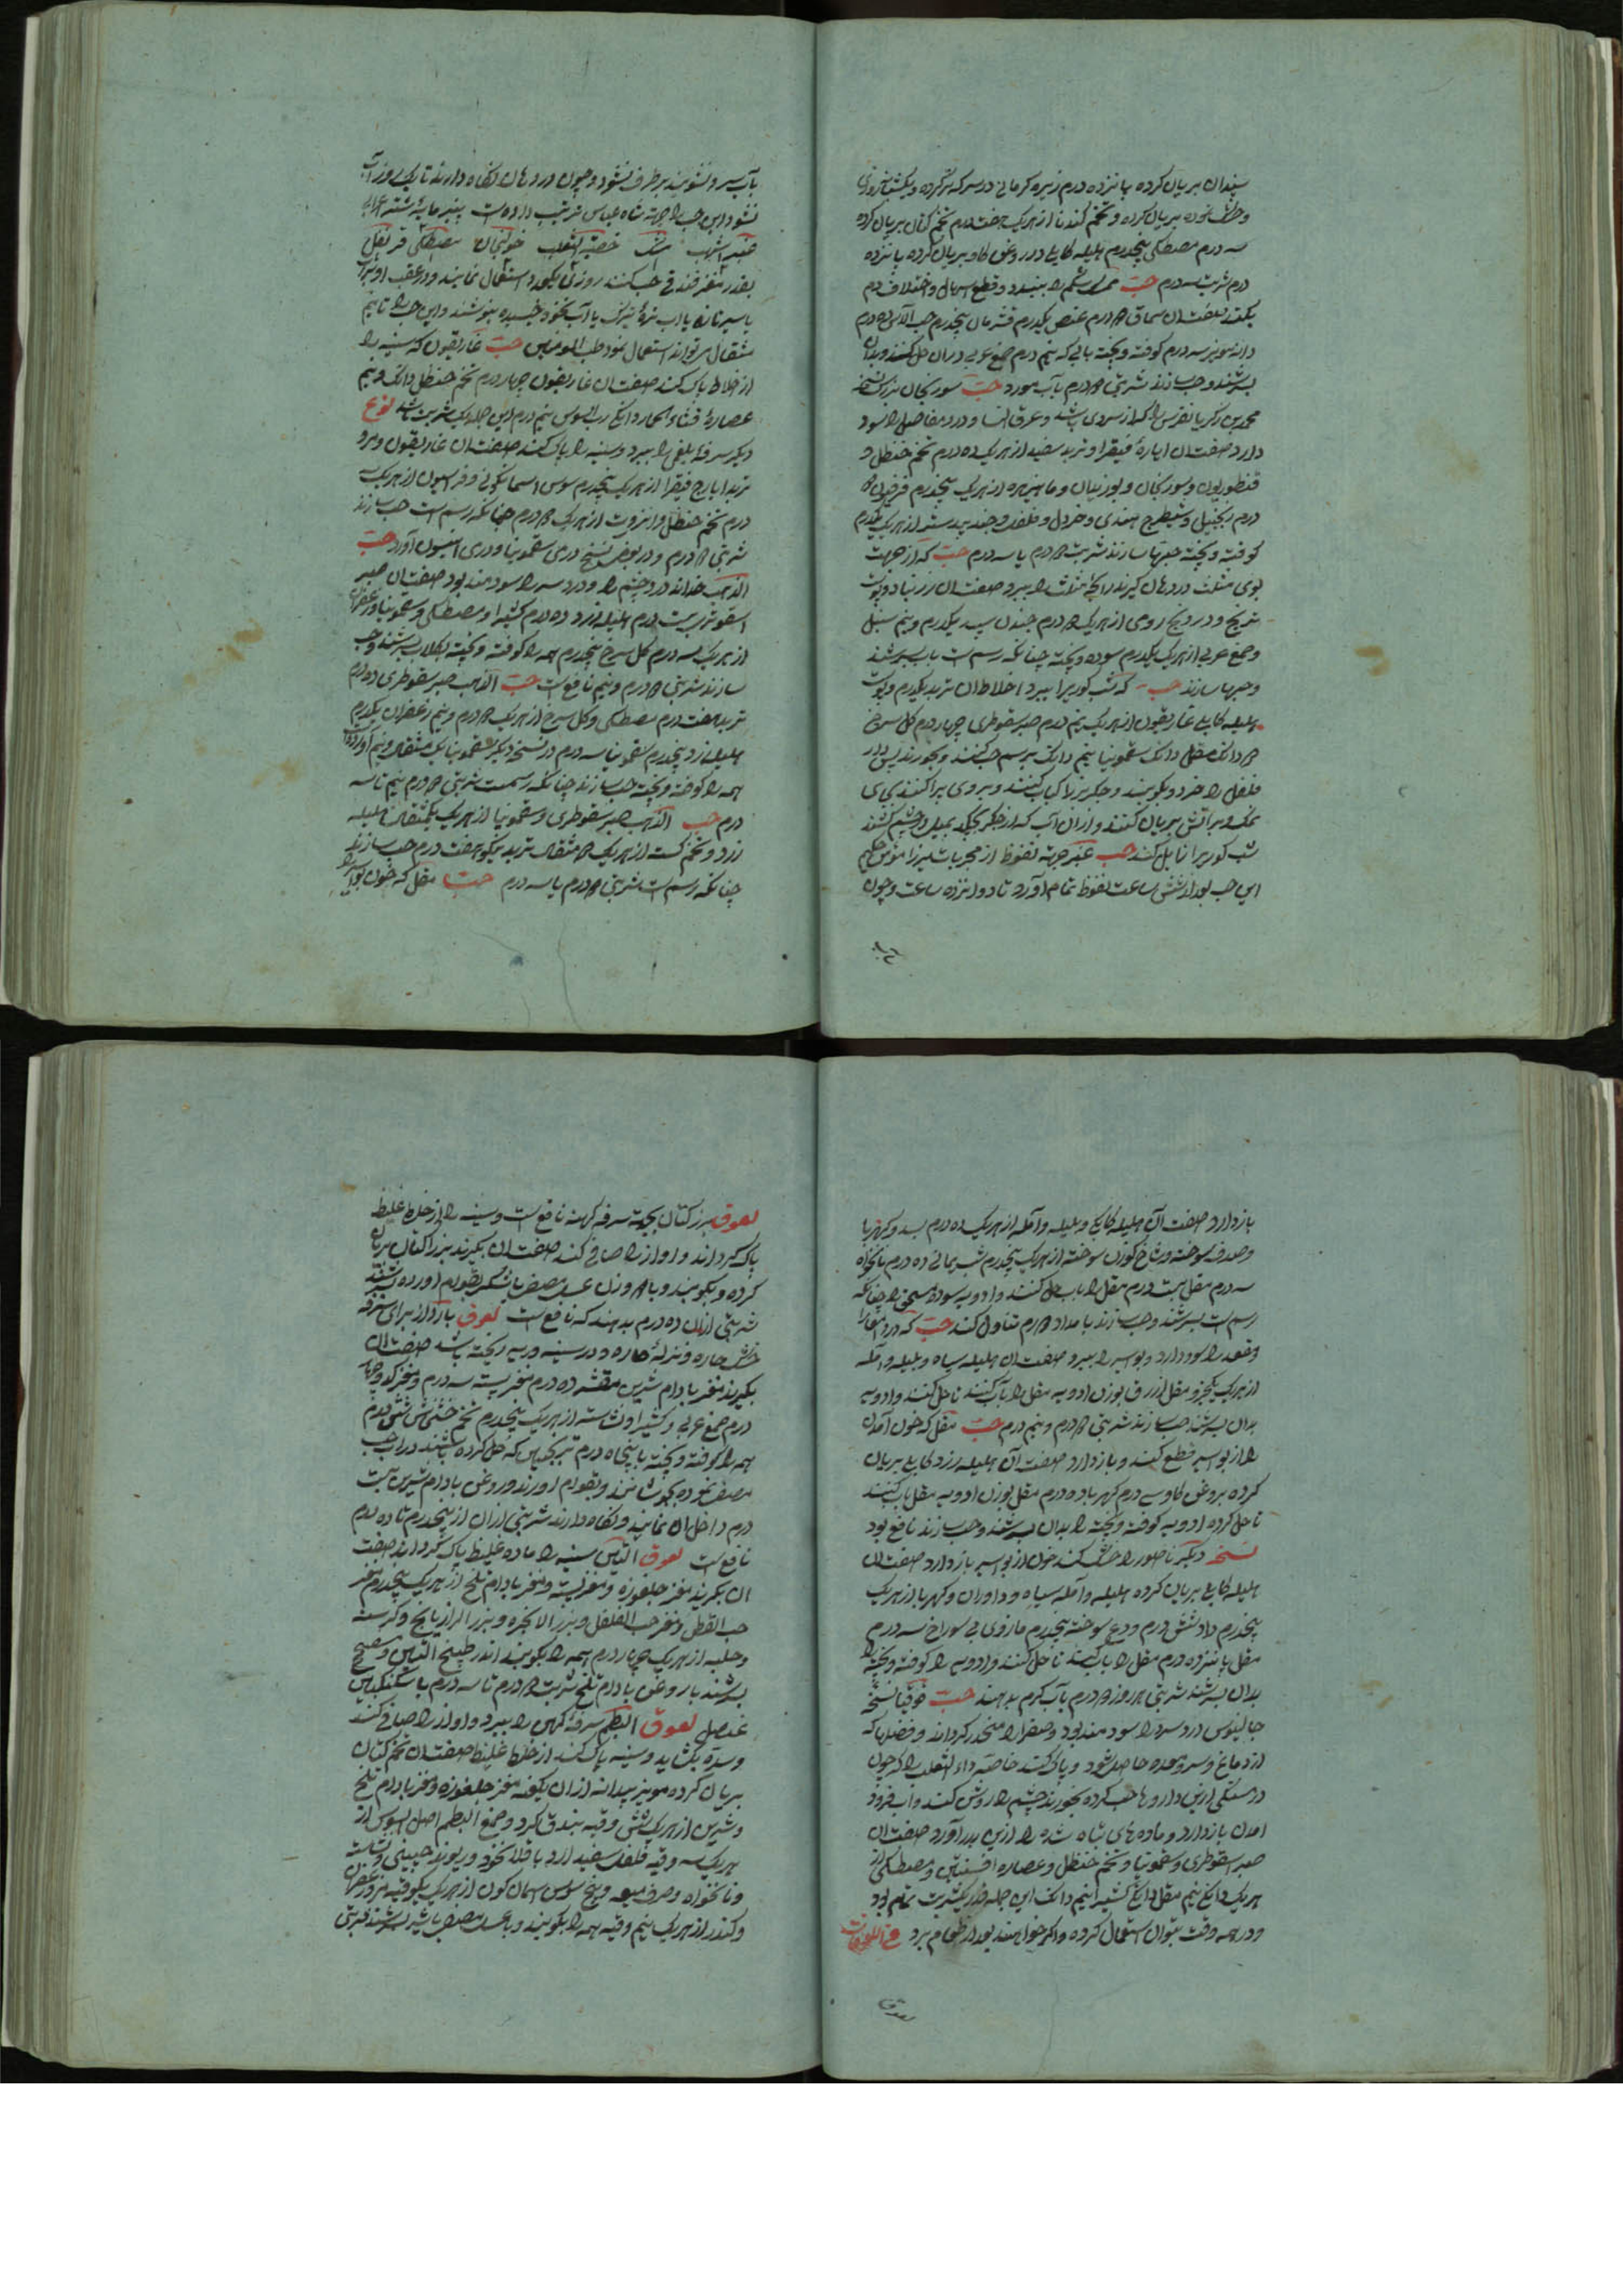 سپندان بریان کرده پانزده درم زیره کرمانی در سرکه تر کرده و یکشبانروزی
بریان کرده و تخم کندنا از هریک هفت درم تخم کتان بریان کرده
سه درم مصطکی پنجدرم هلیله کابلی در روغن کاو بریان کرده پانزده
درم شربت سه درم حب شکم را ببندد و قطع اسهال و اختلاف دم
بکند صفت ان سماق درم عفص یکدرم قشر مان پنجدرم حب الاس ده درم
دانه مویز سه درم کوفته و پخته بابی که نیم درم صمغ عربی در ان حل کنند و بدان
بسرشند و حب سازند شربتی درم بآب مورد حب سورنجان بزرک نسخه
محمد بن زکریا نقرس را که از سردی باشد و عرق النسا و درد مفاصل را سود
دارد صفت ان ایاره فیقرا و تربد سفید از هریک ده درم تخم حنظل و
قنطوریون و سورنجان و بوزیدان و ماهیزهره از هریک پنجدرم فرفیون
درم زنجبیل و شیطرج هندی و خردل و فلفل و جند بیدستر از هریک یکدرم
کوفته و پخته حبها سازند شربت درم یا سه درم حب که از جهت
بوی مثلث در دهان کیرند رائحه مثلث را ببرد صفت ان زرنباد و پوست
ترنج و درونج رومی از هریک درم صندل سپید یکدرم و نیم سنبل
و صمغ عربی از هریک یکدرم سوده و پخته چنانکه رسم است باب بسرشند
و حبها سازند حب که شب کوری را ببرد اخلاط ان تربد یکدرم و پوست
هلیله کابلی غاریقون از هریک نیم درم صبر سقوطری چهار درم کل سرخ
دانک مقل دانک سقمونیا نیم دانک برسم حب کنند و بخورند پس دار
فلفل را خرد بکوبند و جکر بز را کباب کنند و بر وی پراکنند بجای
نمک و بر آتش بریان کنند و از ان آب که از جکر بچکد بمیل در چشم کشند
شب کوری را زایل کند حب عنبر جهة نعوظ از مجربات میرزا مؤمن حکیم
این حب بعد از شش ساعت نعوظ تمام آورد تا دوانزده ساعت و چون
بآب سرد نشویند برطرف نشود و چون در دهان نکاه دارند تا یکروز آب
نشود این حب را جهة شاه عباس ترتیب داده است پنیر مایه شتر اعرابی
عنبر اشهب مشک خصیة الثعلب خولنجان مصطکی قرنفل
بقدر مغز فندقی حب کنند روزی یکعدد استعمال نمایند و در عقب او شراب
یا شیر تازه یا اب تره تیزک یا آب نخود خیسیده بنوشند و این حب را تا نیم
مثقال میتواند استعمال نمود طب المومنین حب غاریقون که سینه را
از اخلاط پاک کند صفت ان غاریقون چهار درم تخم حنظل دانک و نیم
عصاره قثاء الحمار دانکی رب السوس نیم درم این جمله یک شربت باشد نوع
دیکر سرفه بلغمی را ببرد و سینه را پاک کند صفت ان غاریقون و مرو
تربد ایارج فیقرا از هریک پنجدرم سوس اسمانکونی و فراسیون از هریک
درم تخم حنظل و انزروت از هریک درم چنانکه رسم است حب سازند
شربتی درم و در بعض نسخ درمی سقمونیا و درمی افتیمون آورد حب
الذهب خداوند درد چشم را و درد سر را سودمند بود صفت ان صبر
اسقوتری بیست درم هلیله زرد ده درم کتیرا و مصطکی و سقمونیا و زعفران
از هریک سه درم کل سرخ پنجدرم همه را کوفته و پخته بکلاب بسرشند و حب
سازند شربتی درم و نیم نافع است حب الذهب صبر سقوطری ده درم
تربد هفت درم مصطکی و کل سرخ از هریک درم و نیم زعفران یکدرم
هلیله زرد پنجدرم سقمونیا سه درم در نسخه دیکر سقمونیا یک مثقال و نیم آورده
همه را کوفته و پخته حب سازند چنانکه رسمست شربتی درم نیم تا سه
درم حب الذهب صبر سقوطری و سقمونیا از هریک یکمثقال هلیله
زرد و تخم کشت از هریک مثقال تربد نیکو هفت درم حب سازند
چنانکه رسم است شربتی درم یا سه درم حب مقل که خون بواسیر را
باز دارد صفت آن هلیله کابلی و بلیله و آمله از هریک ده درم بسد و کهربا
و صدف سوخته و شاخ کوزن سوخته از هریک پنجدرم شب یمانی ده درم نانخواه
سه درم مقل بیست درم مقل را باب حل کنند و ادویه سوده چنانکه
رسم است بسرشند و حب سازند بامداد درم تناول کند حب که درد مقعد را
و مقعد را سود دارد و بواسیر را ببرد صفت ان هلیله سیاه و بلیله و آمله
از هریک یکجزو مقل ازرق بوزن ادویه مقل را بآب کنند تا حل کنند و ادویه
بدان بسرشند حب سازند شربتی درم و نیم درم حب مقل که خون آمدن
را از بواسیر قطع کند و باز دارد صفت آن هلیله زرد کابلی بریان
کرده بروغن کاو سه درم کهربا ده درم مقل بوزن ادویه مقل باب کنند
تا حل کرده ادویه کوفته و پخته را بدان بسرشند و حب سازند نافع بود
نسخه دیکر ناصور را خشک کند خون از بواسیر باز دارد صفت ان
هلیله کابلی بریان کرده هلیله و آمله سیاه و داوران و کهربا از هریک
پنجدرم شش درم و دع سوخته پنجدرم مازوی بی سوراخ سه درم
مقل پانزده درم مقل را باب کنند تا حل کنند و ادویه را کوفته و پخته را
بدان بسرشند شربتی هر روز درم بآب کرم بدهند حب قوقیا نسخه
جالینوس درد سر را سودمند بود و صفرا را منحدر کرداند و فضلها که
از دماغ و سر و معده حاصل شود و پاک کند خاصه داء الثعلب را که چون
در خستکی ازین داروها حب کرده بخورند چشم را روشن کند و اب فرود
امدن باز دارد و ماده های تباه شده را از تن بدر آورد صفت ان
صبر اسقوطری و سقمونیا و تخم حنظل و عصاره افسنتین و مصطکی از
هریک دانکی نیم مقل دانکی کتیرا نیم دانک این جمله یکشربت تمام بود
و در همه وقت بتوان استعمال کرده و اکر خواهند بعد از طعام برد فی اللعوقات
لعوق
لعوق بزر کتان بجهة سرفه کهنه نافع است و سینه را از خلط غلیظ
پاک کرداند و اواز را صافی کند صفت ان بکیرند بزر الکتان بریان
کرده و بکوبند و با وزن عسل مصفی یا شکر بقوام آورده بسرشند
شربتی از ان ده درم بدهند که نافع است لعوق بارد از برای سرفه
خشک حاره و نزله حاره و در سینه و ریه ریخته باشد صفت ان
بکیرند مغز بادام شیرین مقشر ده درم مغز پسته سه درم و مغز کدو چهار
درم صمغ عربی و کتیرا و نشاسته از هریک پنجدرم تخم خشخاش شش درم
همه را کوفته و پخته با پنجاه درم ترنجبین که حل کرده باشند در اب
مصفی نموده بجوشانند و بقوام اورند و روغن بادام شیرین بیست
درم داخل ان نمایند و نکاه دارند شربتی از ان از پنجدرم تا ده درم
نافع است لعوق التین سینه را ماده غلیظ پاک کرداند صفت
ان بکیرند مغز جلغوزه و مغز پسته و مغز بادام تلخ از هریک پنجدرم مغز
حب القطن و مغز حب الفلفل و بزر الانجره و بزر الرازیانج و کرسنه
و حلبه از هریک چهار درم همه را بکوبند اندر طبیخ التین
بسرشند با روغن بادام تلخ شربت درم تا سه درم با سکنکبین
عنصل لعوق البطم سرفه کهن را ببرد و اواز را صافی کند
و سده بکشاید و سینه پاک کند از خلط غلیظ صفت ان تخم کتان
بریان کرده مویز بیدانه از ان یکوقیه مغز جلغوزه و مغز بادام تلخ
و شیرین از هریک شش وقیه فندق کرد و صمغ البطم اصل السوس از
هریک سه وقیه فلفل سفید ارد باقلا نخود و ریوند چینی و نشاسته
و نانخواه و حرف میعه و بیخ سوس اسمان کون از هریک یکوقیه مر و زعفران
و کندر از هریک نیم وقیه همه را بکوبند و با عسل مصفی بسرشند شربتی